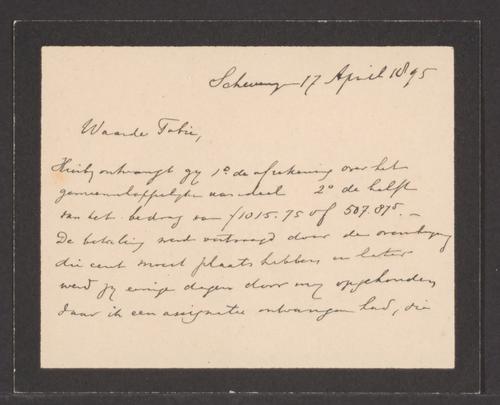 Scheveng 17 April 1895
Waarde Tobie,
Hierbij ontvangt gij 1o. de afrekening over het
gemeenschappelijke aandeel 2o de helft
van het bedrag van ƒ1015.75 of 507.875. —
De betaling werd vertraagd door de overdracht
die eerst moest plaats hebben en later
werd zij eenige dagen door mij opgehouden
daar ik een assignatie ontvangen had, die